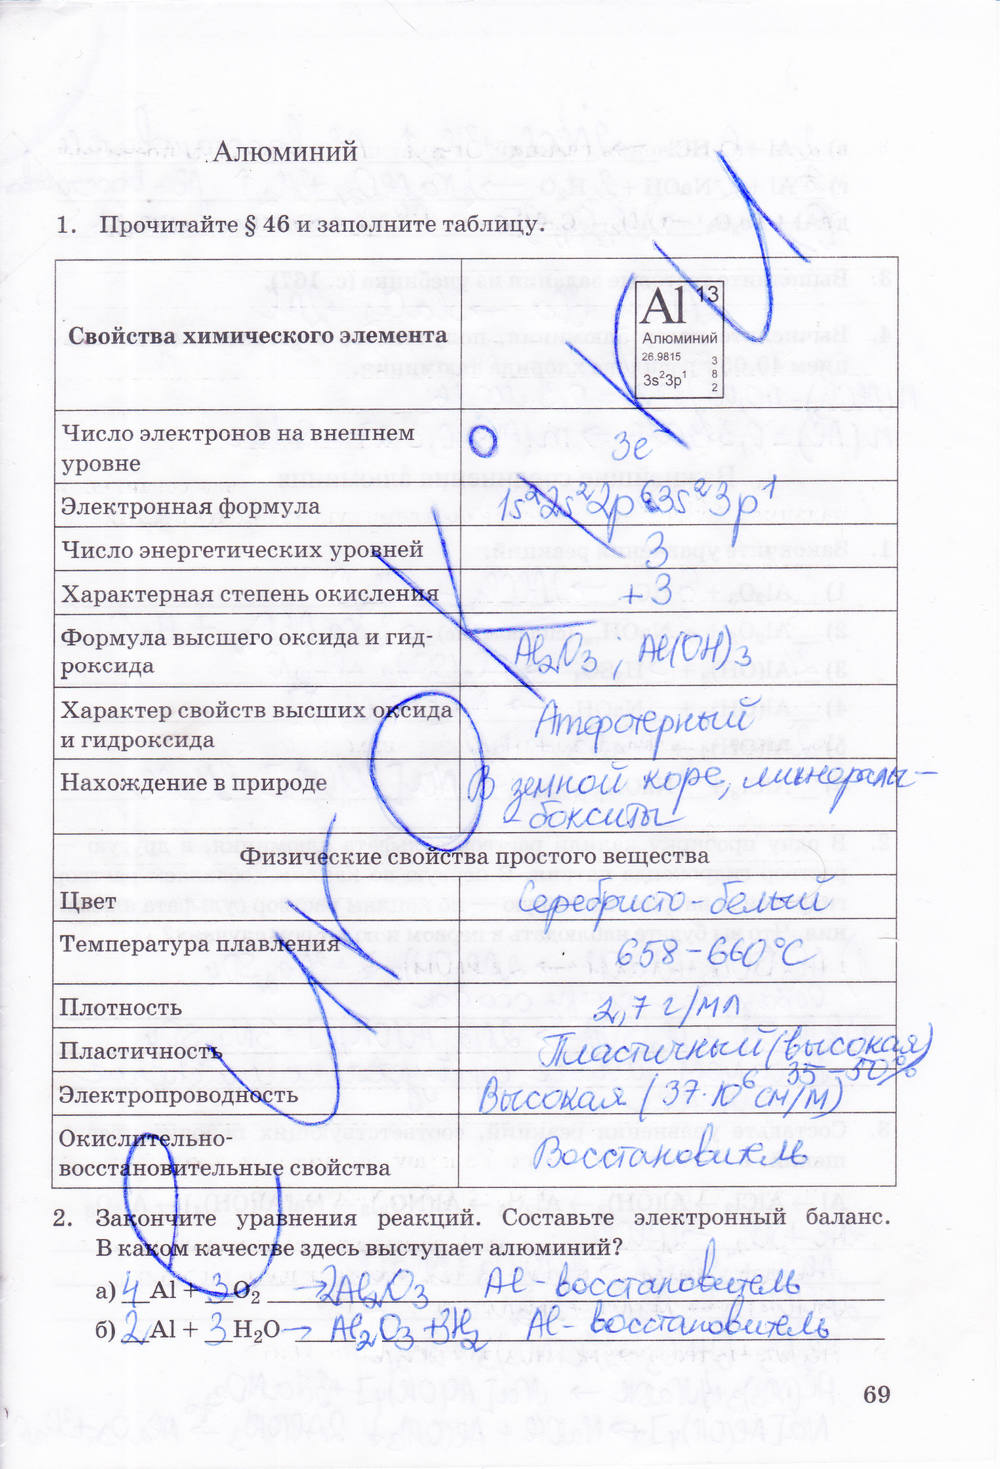 Алюминий
1. Прочитайте § 46 и заполните таблицу.
Свойства химического элемента
Al 13
Алюминий
26.9815 3
8
3s²3p¹ 2
Число электронов на внешнем
уровне
3e⁻
Электронная формула 1s²2s²2p⁶3s²3p¹
Число энергетических уровней 3
Характерная степень окисления +3
Формула высшего оксида и гид-
роксида
Al₂O₃, Al(OH)₃
Характер свойств высших оксида
и гидроксида
Амфотерный
Нахождение в природе В земной коре, минералы-
- бокситы
Физические свойства простого вещества
Цвет Серебристо-белый
Температура плавления 658-660°C
Плотность 2,7 г/мл
Пластичность Пластичный (высокая)
35-50%
Электропроводность Высокая (37·10⁶ см/м)
Окислительно-
восстановительные свойства
Восстановитель
2. Закончите уравнения реакций. Составьте электронный баланс.
В каком качестве здесь выступает алюминий?
а) 4 Al + 3 O₂ → 2Al₂O₃ Al - восстановитель
б) 2 Al + 3 H₂O → Al₂O₃ + 3H₂ Al - восстановитель
69